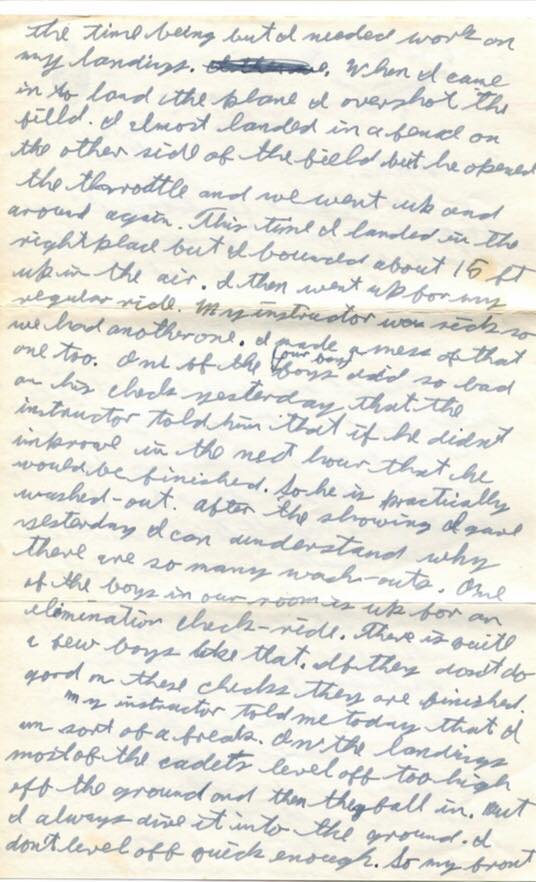 the time being but I needed work on
my landings. When I came
in to land the plane I overshot the
field. I almost landed in a fence on
the other side of the field but he opened
the throttle and we went up and
around again. This time I landed in the
right place but I bounced about 15 ft
up in the air. I then went up for my
regular ride. My instructor was sick so
we had another one. I made a mess of that
one too. One of the boys (our bay) did so bad
on his check yesterday that the
instructor told him that if he didn't
improve in the next hour that he
would be finished. So he is practically
washed-out. After the showing I gave
yesterday I can understand why
there are so many wash-outs. One
of the boys in our room is up for an
elimination check-ride. There is quite
a few boys like that. If they don't do
good on these checks they are finished.
My instructor told me today that I
am sort of a freak. On the landings
most of the cadets level off too high
off the ground and then they fall in. But
I always dive it into the ground. I
don't level off quick enough. So my front